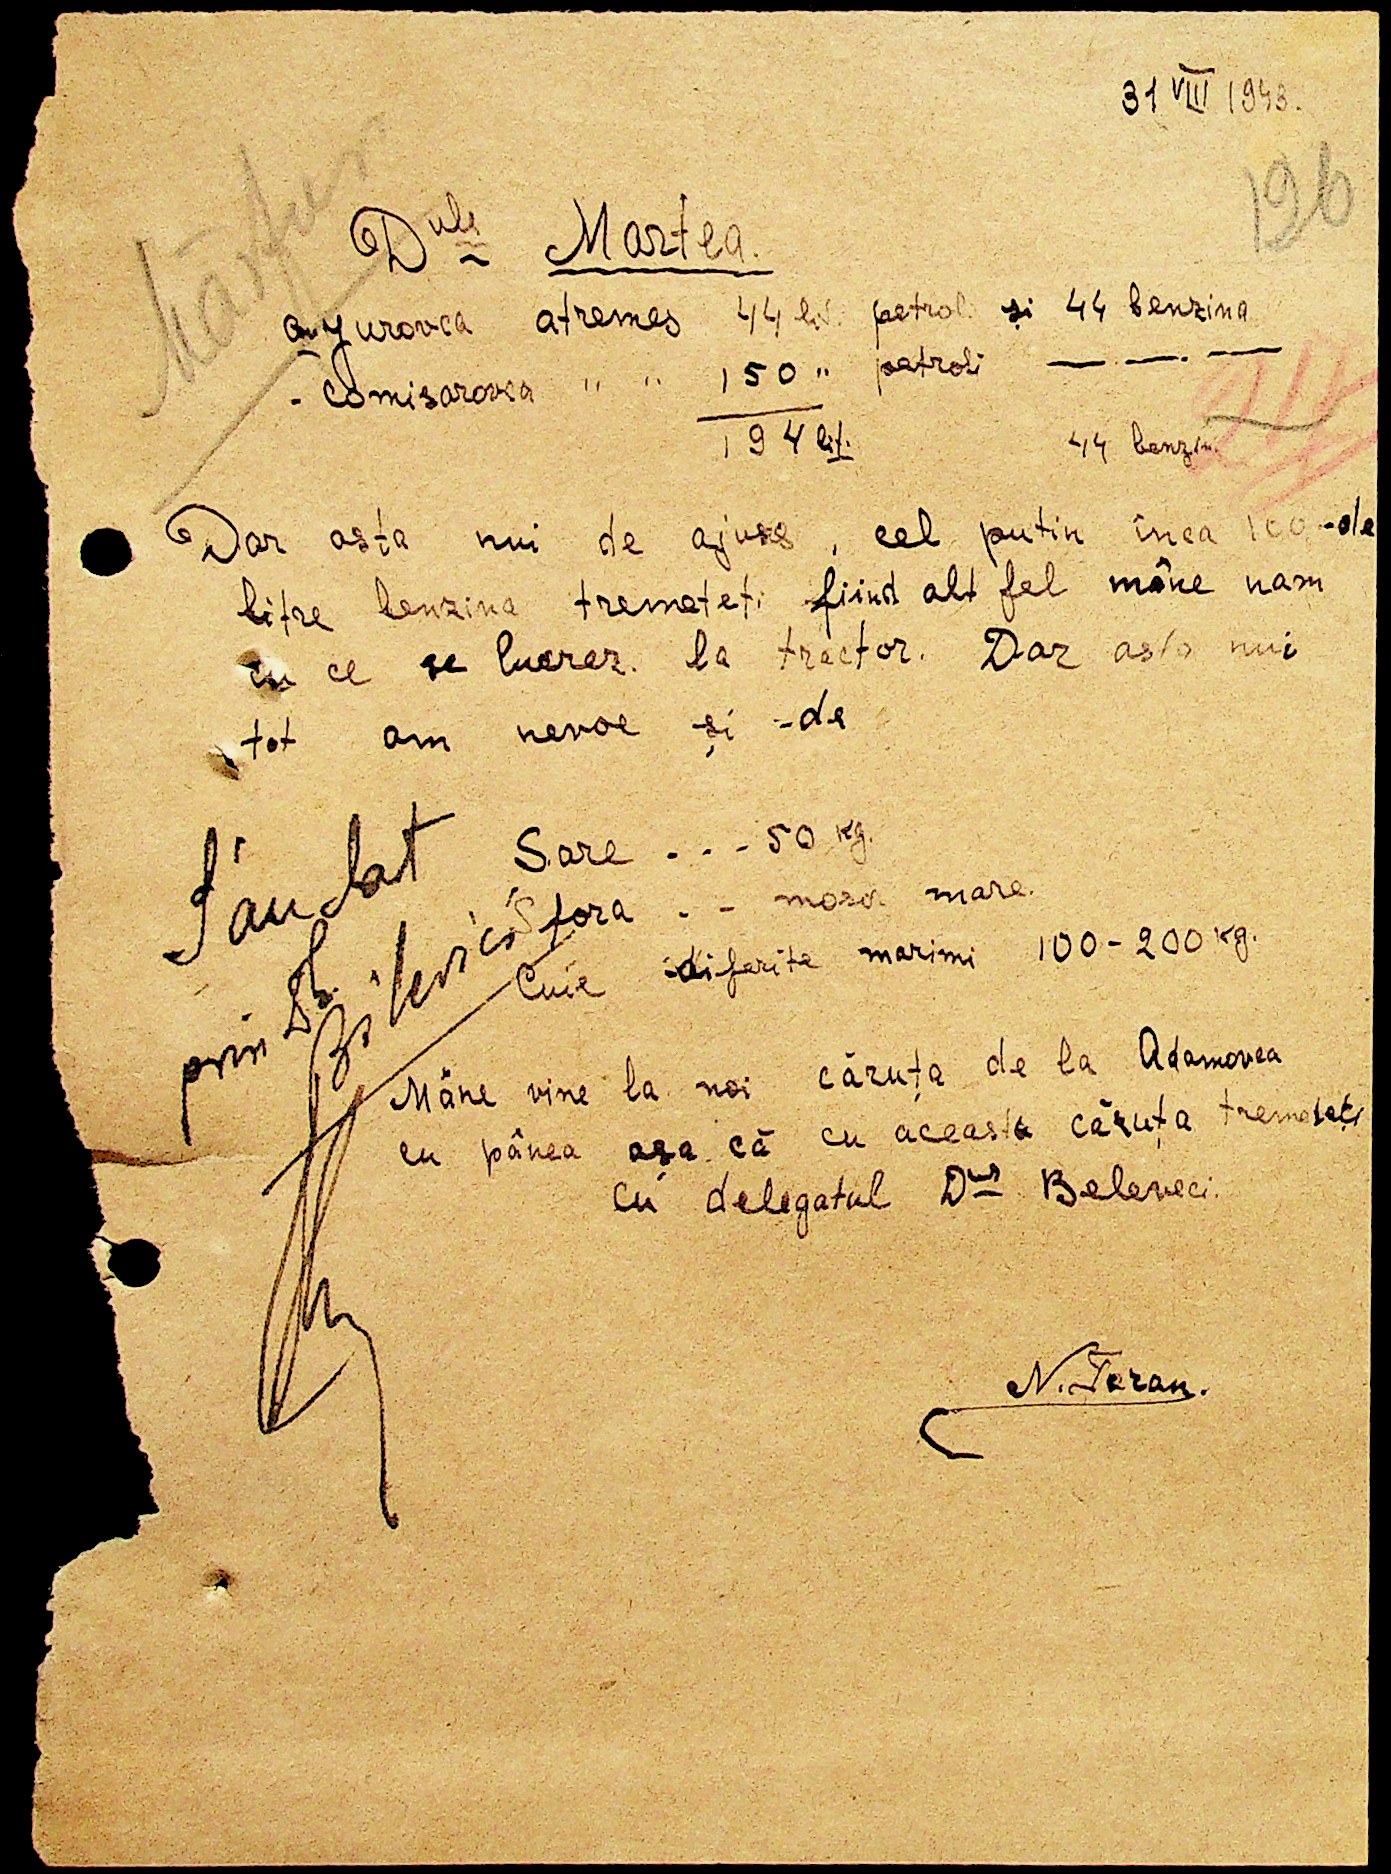 31 VIII 1943.
196
Dule Martea.
atremes 44 lit. petrol. și 44 benzina
- Comisarovca " " 150 " petroli — — —
194 lit. 44 benzin
Dar asța nui de ajuns, cel putin înca 100 -de
litre benzina tremeteți fiind alt fel mâne nam
cu ce se lucrez. la tractor. Dar asta nui
tot am nevoe și -de
Sare . . - 50 kg.
Sfora . - mare.
Cuie diferite marimi 100-200 kg.
S'au dat
prin Dl. Bilevici
Mâne vine la noi căruța de la Adamovca
cu pânea așa că cu aceasta căruța tremeteți
cu delegatul Dnul Beleveci.
N. Țaran.